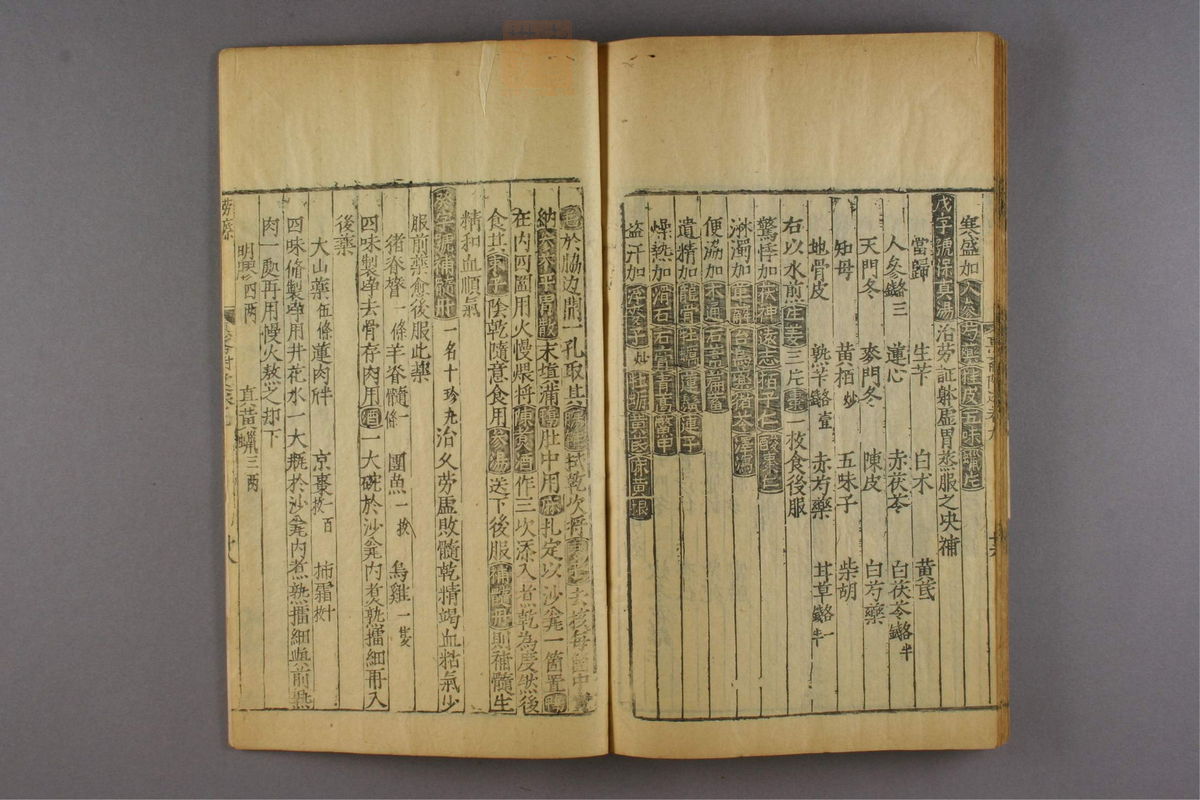 寒盛加人參芍藥桂皮五味
戊字號保真湯治勞証躰虛胃蒸服之央補
當歸 生芐 白木 黄茋
人參 三 蓮心 赤茯苓 白茯苓 半
天門冬 麥門冬 陳皮 白芍藥
知母 黄栢炒 五味子 柴胡
地骨皮 熟芐 壹 赤芍藥 甘草 一 半
右以水煎生姜三片棗一枚食後服
驚悸加茯神遠志栢子仁酸棗仁
淋濁加萆薢台烏藥猪苓澤瀉
便澁加木通石葦萹蓄
遺精加龍骨牡蠣蓮鬚蓮子
燥熱加滑石石膏青蒿鱉甲
盗汗加浮麥子炒牡蠣黄茋麻黄根
於脇边開一孔取出 拭乾次將 去核每 中
納 參苓平胃散末填滿 肚中用麻扎定以沙瓮一箇置
在内四圍用火慢煨將陳 酒作三次添入煮乾為度然後
食其棗子陰乾隨意食用參湯送下後服補髓丹則補髓生
精和血順氣
癸字號補髓丹 一名十珍丸 治久勞虛敗髓乾精竭血粘氣少
服前藥愈後服此藥
猪脊膂一條 羊脊髓一條 團魚一枚 烏雞一隻
四味製淨去骨存肉用酒一大碗於沙瓮内煑熟擂細再入
後藥
大山藥伍條 蓮肉半 京棗一百枚 柿霜十枚
四味俻製淨用井花水一大瓶於沙瓮内煮熟擂細與前熟
肉一處再用慢火熬之却下
明膠四两 直黄蠟三两